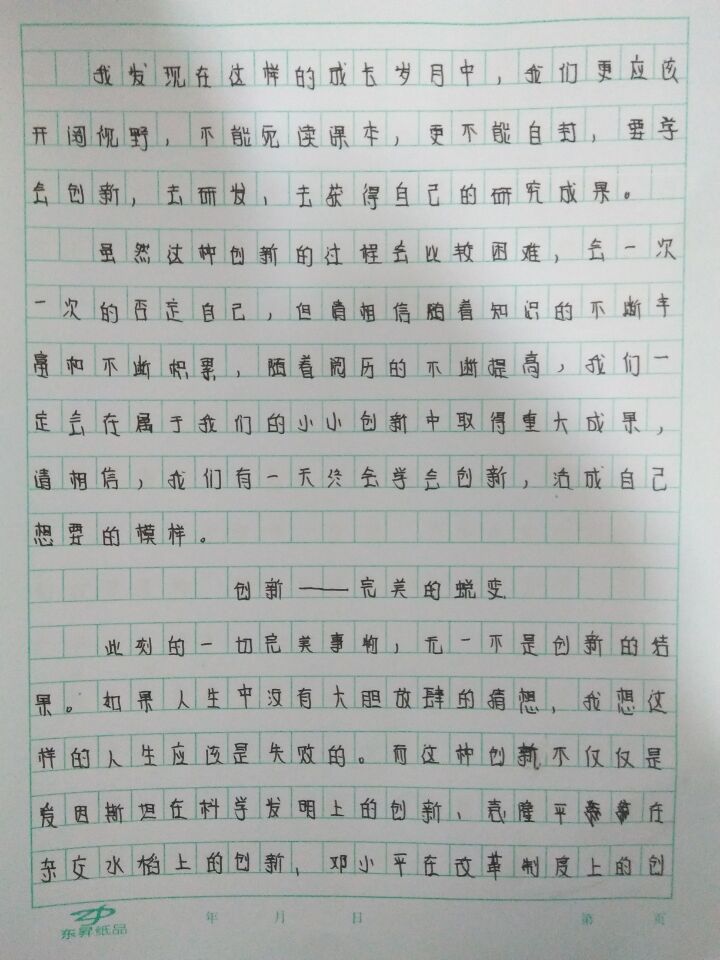 我发现在这样的成长岁月中，我们更应该
开阔视野，不能死读课本，更不能自封，要学
会创新，去研发，去获得自己的研究成果。
虽然这种创新的过程会比较困难，会一次
一次的否定自己，但请相信随着知识的不断丰
富和不断积累，随着阅历的不断提高，我们一
定会在属于我们的小小创新中取得重大成果，
请相信，我们有一天终会学会创新，活成自己
想要的模样。
创新——完美的蜕变
此刻的一切完美事物，无一不是创新的结
果。如果人生中没有大胆放肆的猜想，我想这
样的人生应该是失败的。而这种创新不仅仅是
爱因斯坦在科学发明上的创新、袁隆平在
杂交水稻上的创新、邓小平在改革制度上的创
东昇纸品 年 月 日 第 页